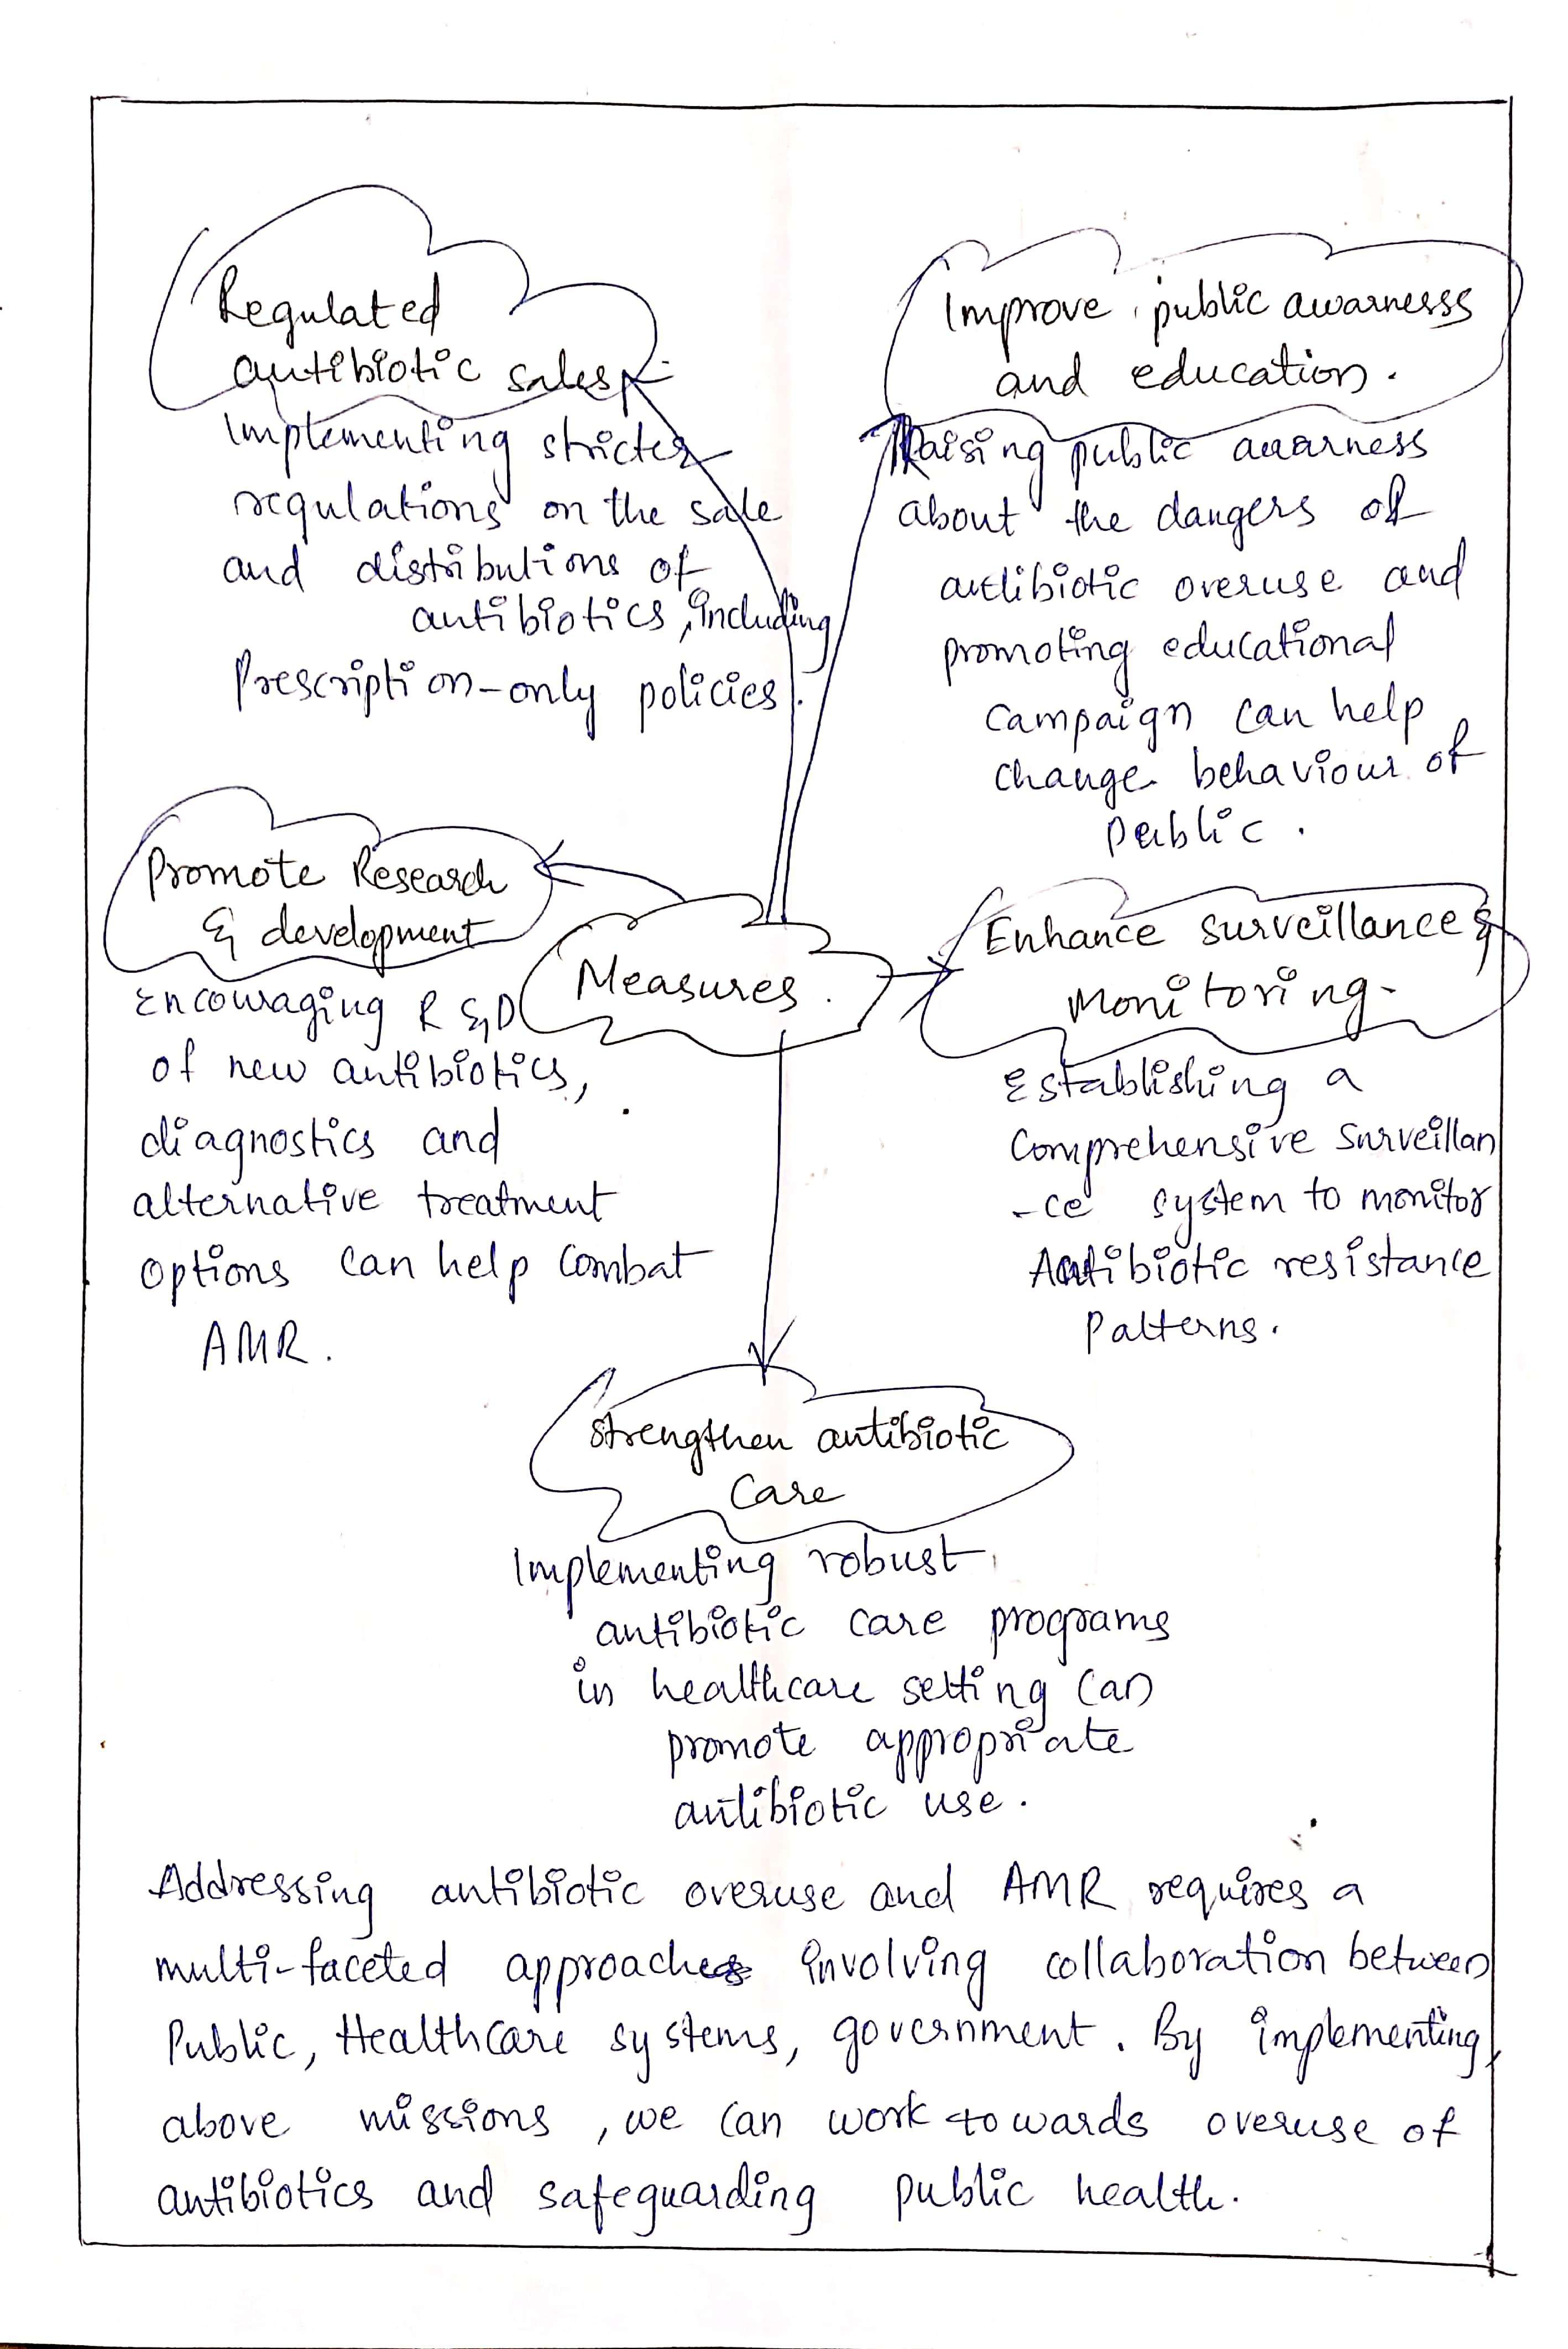 Regulated
antibiotic sales
Implementing stricter
regulations on the sale
and distributions of
antibiotics, including
Prescription-only policies.
Improve public awarnesss
and education.
Raising public awarness
about the dangers of
antibiotic overuse and
promoting educational
campaign can help
change behaviour of
public.
Promote Research
& development
Encouraging R & D
of new antibiotics,
diagnostics and
alternative treatment
options can help combat
AMR.
Measures.
Enhance surveillance &
Monitoring-
Establishing a
Comprehensive surveillan
-ce system to monitor
Antibiotic resistance
Patterns.
Strengthen antibiotic
Care
Implementing robust
antibiotic care programs
in healthcare setting can
promote appropriate
antibiotic use.
Addressing antibiotic overuse and AMR requires a
multi-faceted approach involving collaboration between
Public, Healthcare systems, government. By implementing
above missions, we can work towards overuse of
antibiotics and safeguarding public health.